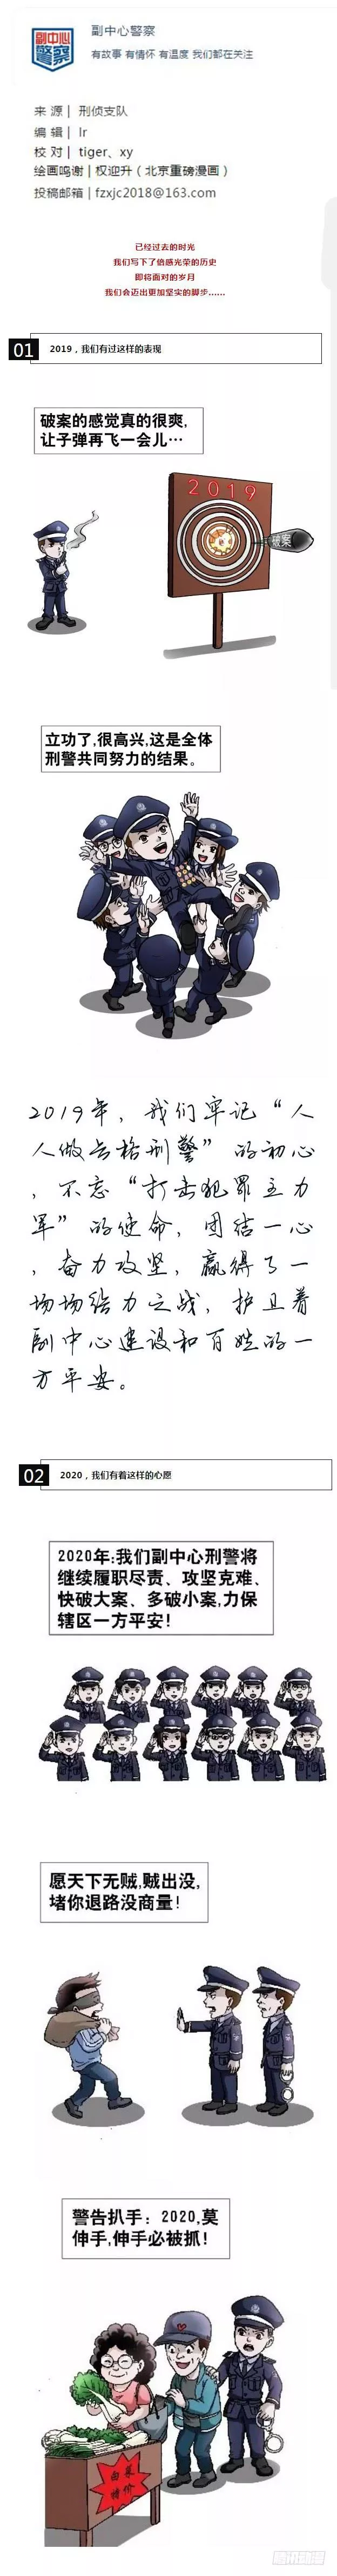 副中心
警察
副中心警察
有故事 有情怀 有温度 我们都在关注
来 源 | 刑侦支队
编 辑 | lr
校 对 | tiger、xy
绘画鸣谢 | 权迎升（北京重磅漫画）
投稿邮箱 | fzxjc2018@163.com
已经过去的时光
我们写下了倍感光荣的历史
即将面对的岁月
我们会迈出更加坚实的脚步......
01 2019，我们有过这样的表现
破案的感觉真的很爽,
让子弹再飞一会儿…
2019
破案
立功了,很高兴,这是全体
刑警共同努力的结果。
2019年，我们牢记“人
人做合格刑警”的初心
，不忘“打击犯罪主力
军”的使命，团结一心
，奋力攻坚，赢得了一
场场给力之战，护卫着
副中心建设和百姓的一
方平安。
02 2020，我们有着这样的心愿
2020年:我们副中心刑警将
继续履职尽责、攻坚克难、
快破大案、多破小案,力保
辖区一方平安!
愿天下无贼,贼出没,
堵你退路没商量!
警告扒手：2020,莫
伸手,伸手必被抓!
白菜
特价
腾讯动漫